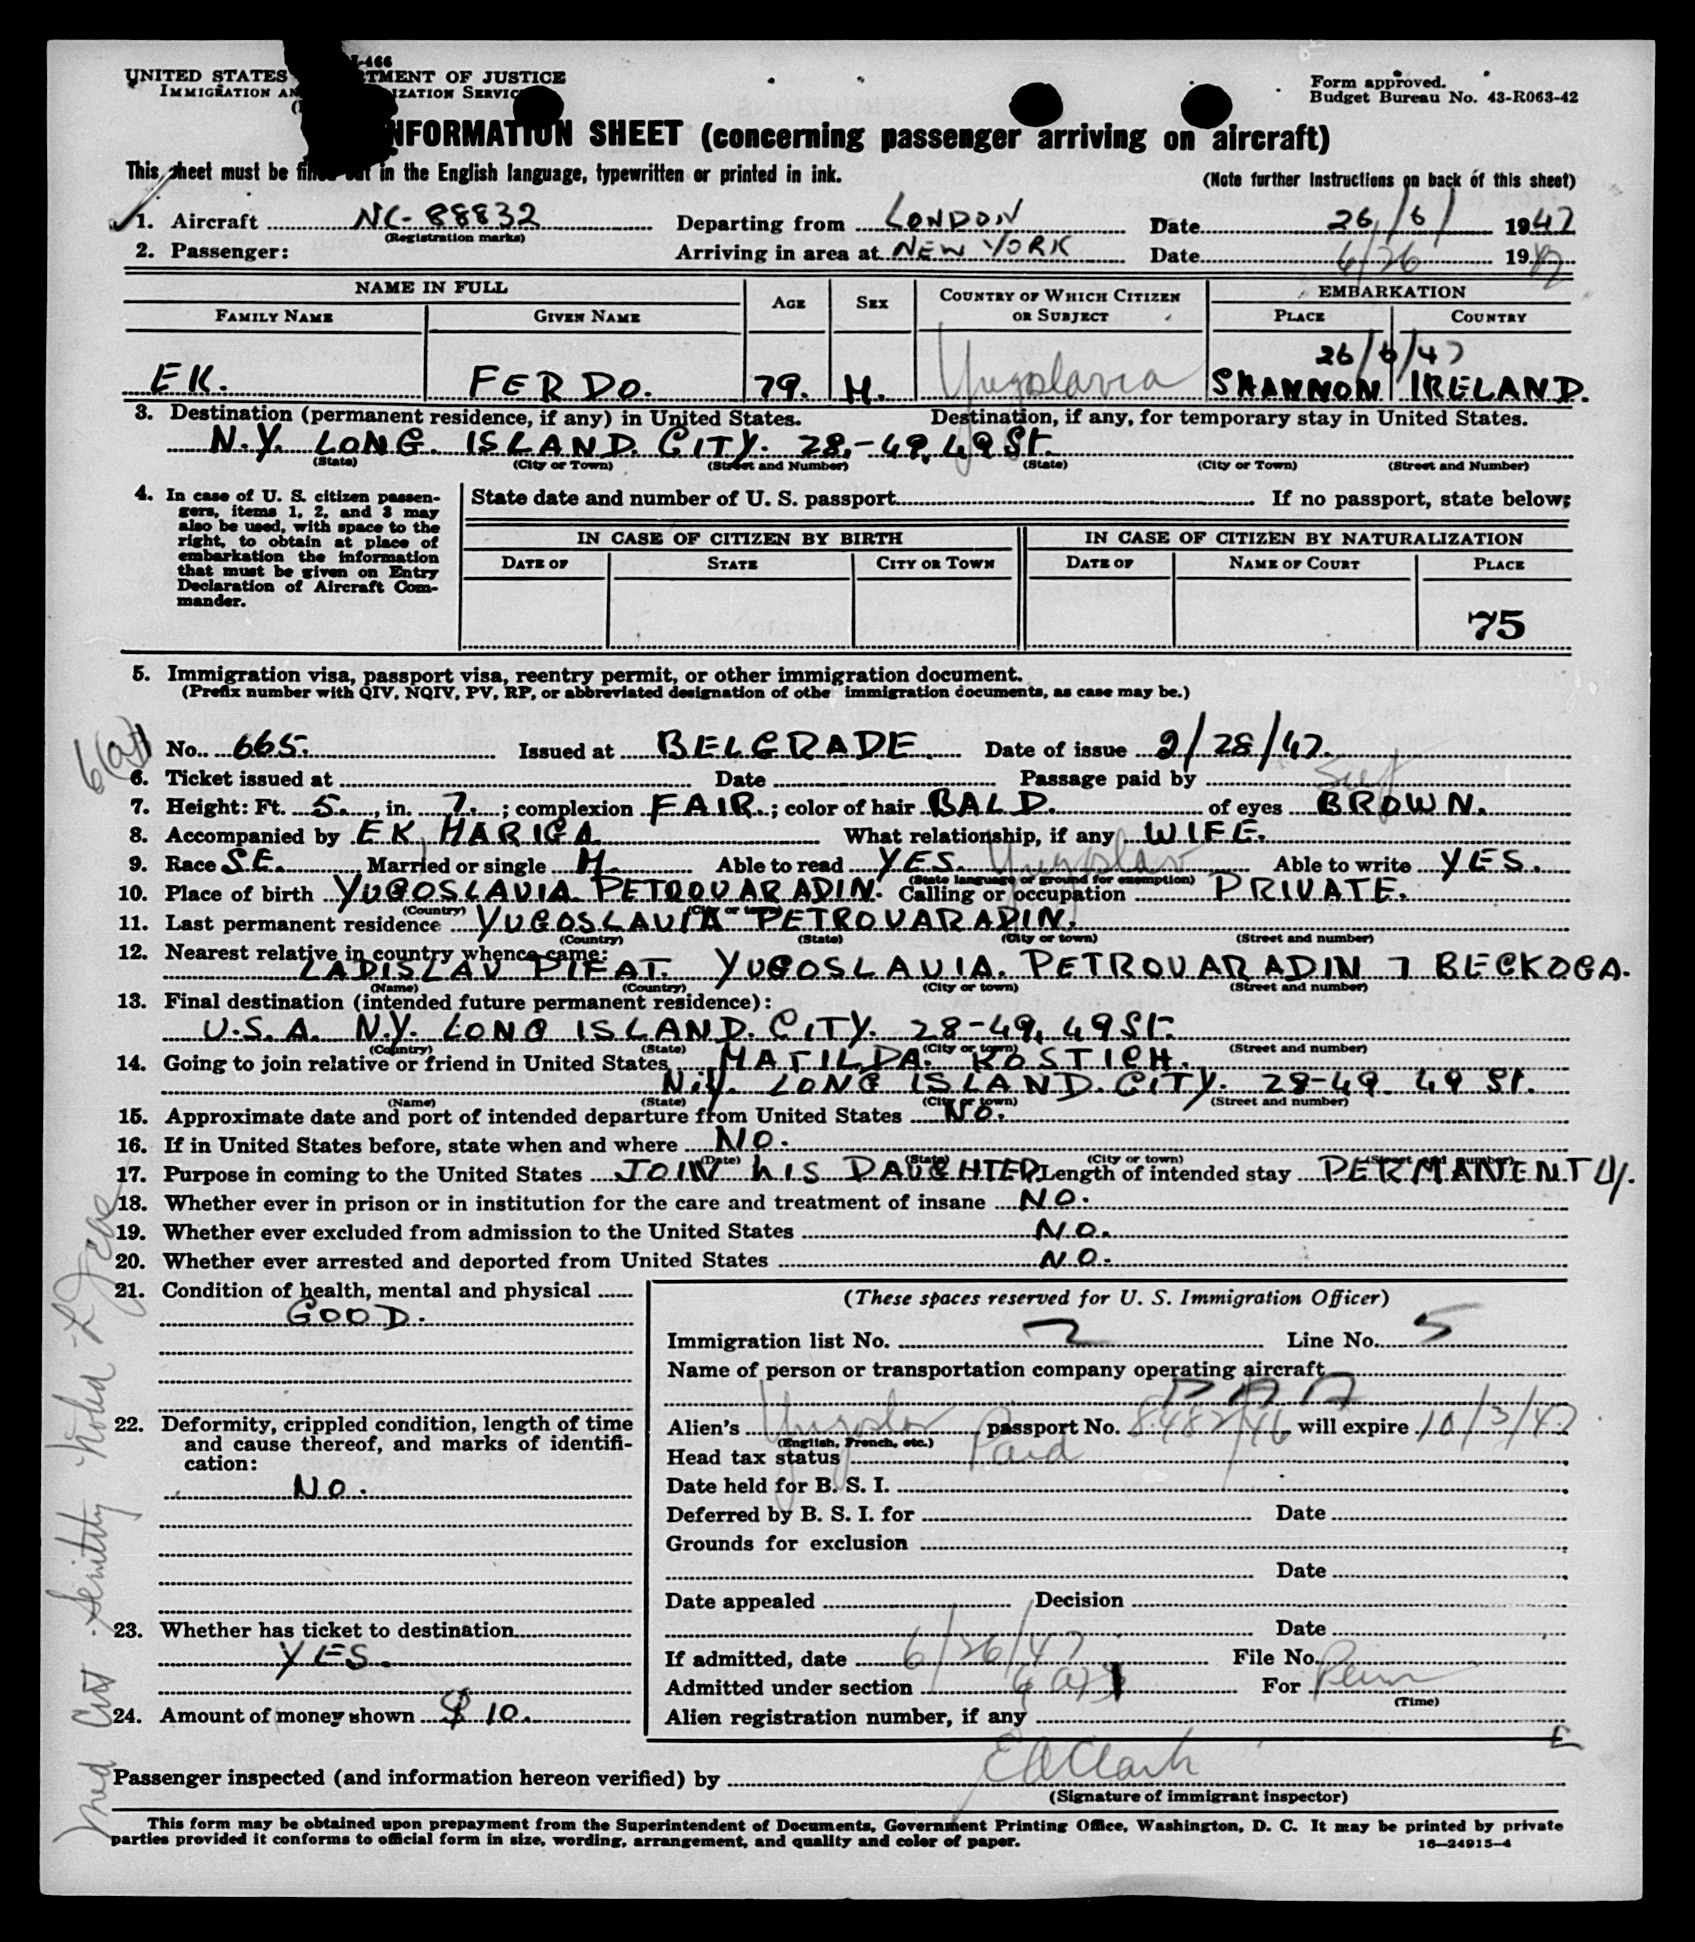 I-466
UNITED STATES TMENT OF JUSTICE
IMMIGRATION AN IZATION SERVIC
Form approved.
Budget Bureau No. 43-R063-42
NFORMATION SHEET (concerning passenger arriving on aircraft)
This sheet must be filled out in the English language, typewritten or printed in ink.
(Note further instructions on back of this sheet)
1. Aircraft NC-88832 Departing from LONDON Date 26/6/ 1947
(Registration marks)
2. Passenger: Arriving in area at NEW YORK Date 6/26 1947
NAME IN FULL AGE SEX COUNTRY OF WHICH CITIZEN OR SUBJECT EMBARKATION
FAMILY NAME GIVEN NAME PLACE COUNTRY
26/6/47
EK. FERDO. 79. M. Yugoslavia SHANNON IRELAND.
3. Destination (permanent residence, if any) in United States. Destination, if any, for temporary stay in United States.
N.Y. LONG. ISLAND. CITY. 28.-49, 49 St.
(State) (City or Town) (Street and Number) (State) (City or Town) (Street and Number)
4. In case of U. S. citizen passengers, items 1, 2, and 3 may also be used, with space to the right, to obtain at place of embarkation the information that must be given on Entry Declaration of Aircraft Commander.
State date and number of U. S. passport If no passport, state below:
IN CASE OF CITIZEN BY BIRTH IN CASE OF CITIZEN BY NATURALIZATION
DATE OF STATE CITY OR TOWN DATE OF NAME OF COURT PLACE
75
5. Immigration visa, passport visa, reentry permit, or other immigration document.
(Prefix number with QIV, NQIV, PV, RP, or abbreviated designation of othe immigration documents, as case may be.)
6(a)1
No. 665. Issued at BELGRADE Date of issue 2/28/47.
6. Ticket issued at Date Passage paid by Self
7. Height: Ft. 5., in. 7.; complexion FAIR.; color of hair BALD. of eyes BROWN.
8. Accompanied by EK MARIGA What relationship, if any WIFE.
9. Race S.E. Married or single M. Able to read YES. Yugoslav Able to write YES.
(State language or ground for exemption)
10. Place of birth YUGOSLAVIA PETROVARADIN. Calling or occupation PRIVATE.
(Country) (City or town)
11. Last permanent residence YUGOSLAVIA PETROVARADIN.
(Country) (State) (City or town) (Street and number)
12. Nearest relative in country whence came:
LADISLAV PIFAT. YUGOSLAVIA. PETROVARADIN 7 BECKOGA.
(Name) (Country) (City or town) (Street and number)
13. Final destination (intended future permanent residence):
U.S.A. N.Y. LONG ISLAND. CITY. 28-49, 49 St.
(Country) (State) (City or town) (Street and number)
14. Going to join relative or friend in United States MATILDA. KOSTICH.
N.Y. LONG ISLAND. CITY. 28-49 49 St.
(Name) (State) (City or town) (Street and number)
15. Approximate date and port of intended departure from United States NO.
16. If in United States before, state when and where NO.
(Date) (State) (City or town) (Street and number)
17. Purpose in coming to the United States JOIN HIS DAUGHTER Length of intended stay PERMANENTLY.
18. Whether ever in prison or in institution for the care and treatment of insane NO.
19. Whether ever excluded from admission to the United States NO.
20. Whether ever arrested and deported from United States NO.
21. Condition of health, mental and physical
GOOD.
22. Deformity, crippled condition, length of time
and cause thereof, and marks of identification:
NO.
23. Whether has ticket to destination
YES.
24. Amount of money shown $ 10.
(These spaces reserved for U. S. Immigration Officer)
Immigration list No. 2 Line No. 5
Name of person or transportation company operating aircraft
P A A
Alien's Yugoslav passport No. 8482/46 will expire 10/3/47
(English, French, etc.)
Head tax status Paid
Date held for B. S. I.
Deferred by B. S. I. for Date
Grounds for exclusion
Date
Date appealed Decision
Date
If admitted, date 6/26/47 File No.
Admitted under section For Perm
(Time)
Alien registration number, if any
Med Cert Senility
Passenger inspected (and information hereon verified) by E A Clark
(Signature of immigrant inspector)
This form may be obtained upon prepayment from the Superintendent of Documents, Government Printing Office, Washington, D. C. It may be printed by private
parties provided it conforms to official form in size, wording, arrangement, and quality and color of paper. 16—24915-4